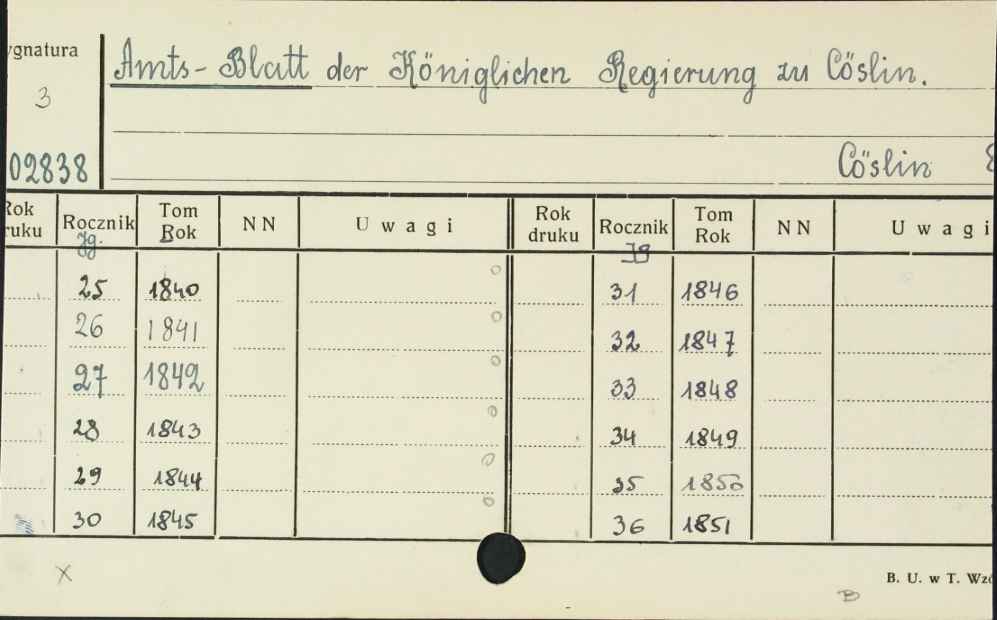 ygnatura
Amts-Blatt der Königlichen Regierung zu Cöslin.
3
02838
Cöslin 8
Rok druku Rocznik Tom Rok NN Uwagi Rok druku Rocznik Tom Rok NN Uwagi
Jg. B Jg
25 1840 31 1846
26 1841 32 1847
27 1842 33 1848
28 1843 34 1849
29 1844 35 1850
30 1845 36 1851
X
B. U. w T. Wzó
B